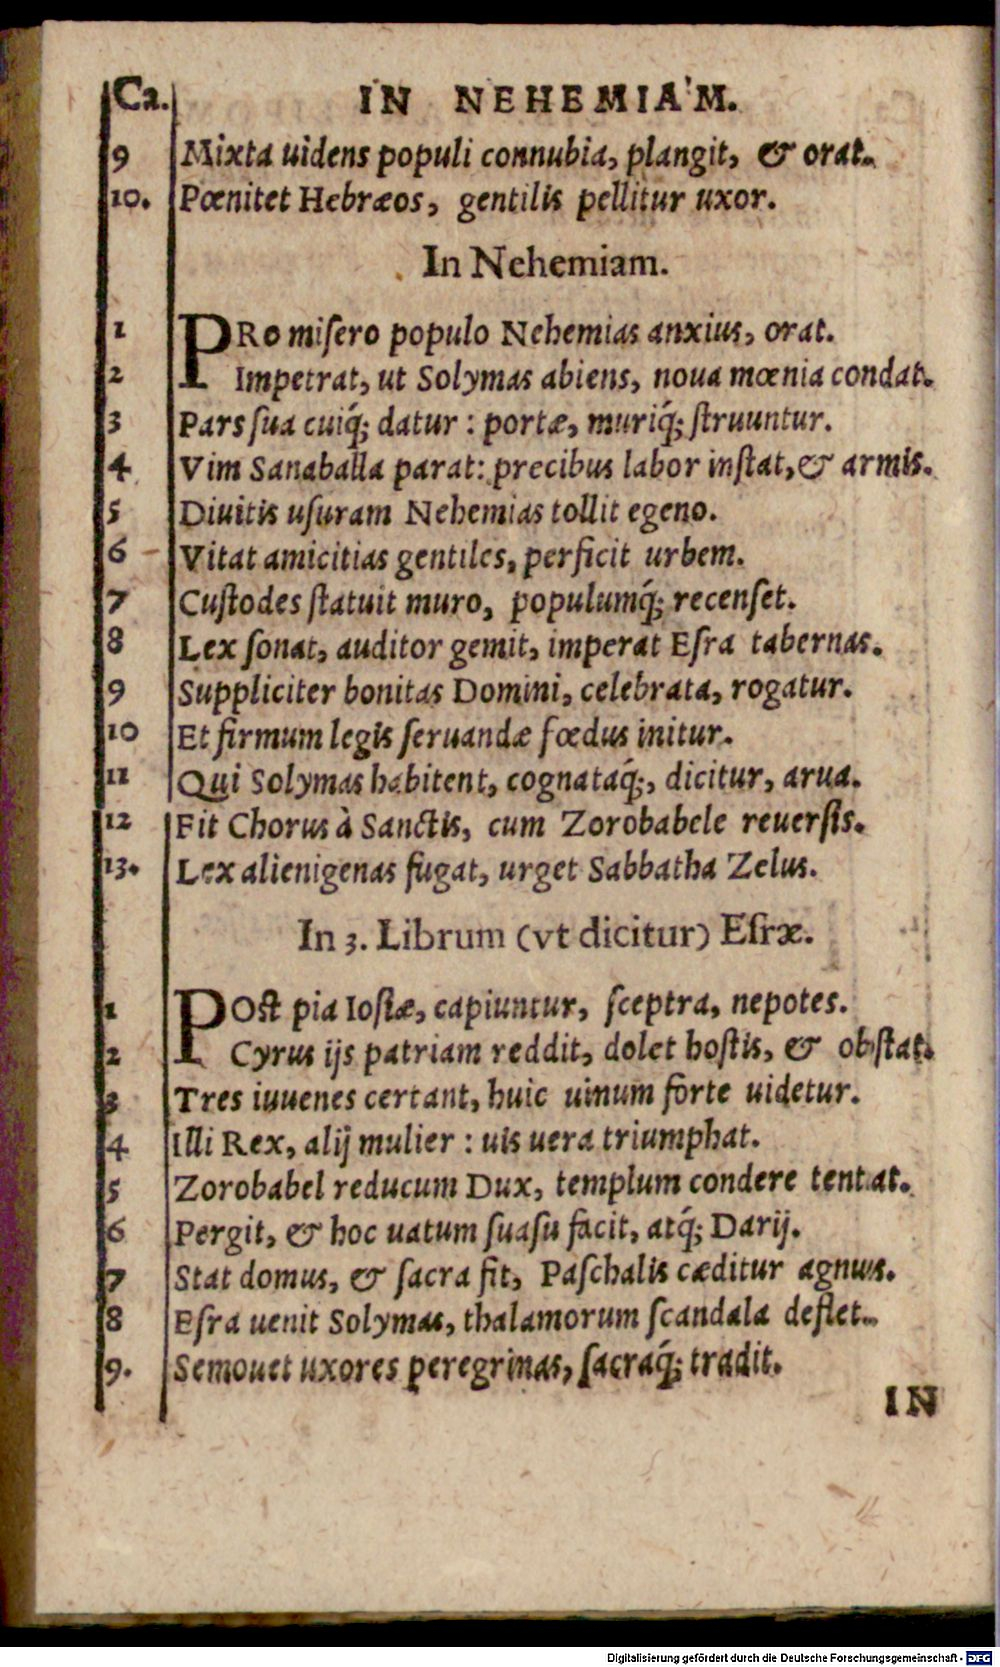 Ca. IN NEHEMIAM.
9 Mixta uidens populi connubia, plangit, & orat.
10. Pœnitet Hebræos, gentilis pellitur uxor.
In Nehemiam.
1 PRo miſero populo Nehemias anxius, orat.
2 Impetrat, ut Solymas abiens, noua mœnia condat.
3 Pars ſua cuiq́; datur : portæ, muriq́; ſtruuntur.
4 Vim Sanaballa parat: precibus labor inſtat, & armis.
5 Diuitis uſuram Nehemias tollit egeno.
6 Vitat amicitias gentiles, perficit urbem.
7 Cuſtodes ſtatuit muro, populumq́; recenſet.
8 Lex ſonat, auditor gemit, imperat Eſra tabernas.
9 Suppliciter bonitas Domini, celebrata, rogatur.
10 Et firmum legis ſeruandæ fœdus initur.
11 Qui Solymas habitent, cognataq́;, dicitur, arua.
12 Fit Chorus à Sanctis, cum Zorobabele reuerſis.
13. Lex alienigenas fugat, urget Sabbatha Zelus.
In 3. Librum (vt dicitur) Eſræ.
1 POſt pia Ioſiæ, capiuntur, ſceptra, nepotes.
2 Cyrus ijs patriam reddit, dolet hoſtis, & obſtat.
3 Tres iuuenes certant, huic uinum forte uidetur.
4 Illi Rex, alij mulier : uis uera triumphat.
5 Zorobabel reducum Dux, templum condere tentat.
6 Pergit, & hoc uatum ſuaſu facit, atq́; Darij.
7 Stat domus, & ſacra fit, Paſchalis cæditur agnus.
8 Eſra uenit Solymas, thalamorum ſcandala deflet.
9. Semouet uxores peregrinas, ſacraq́; tradit.
IN
Digitalisierung gefördert durch die Deutsche Forschungsgemeinschaft - DFG